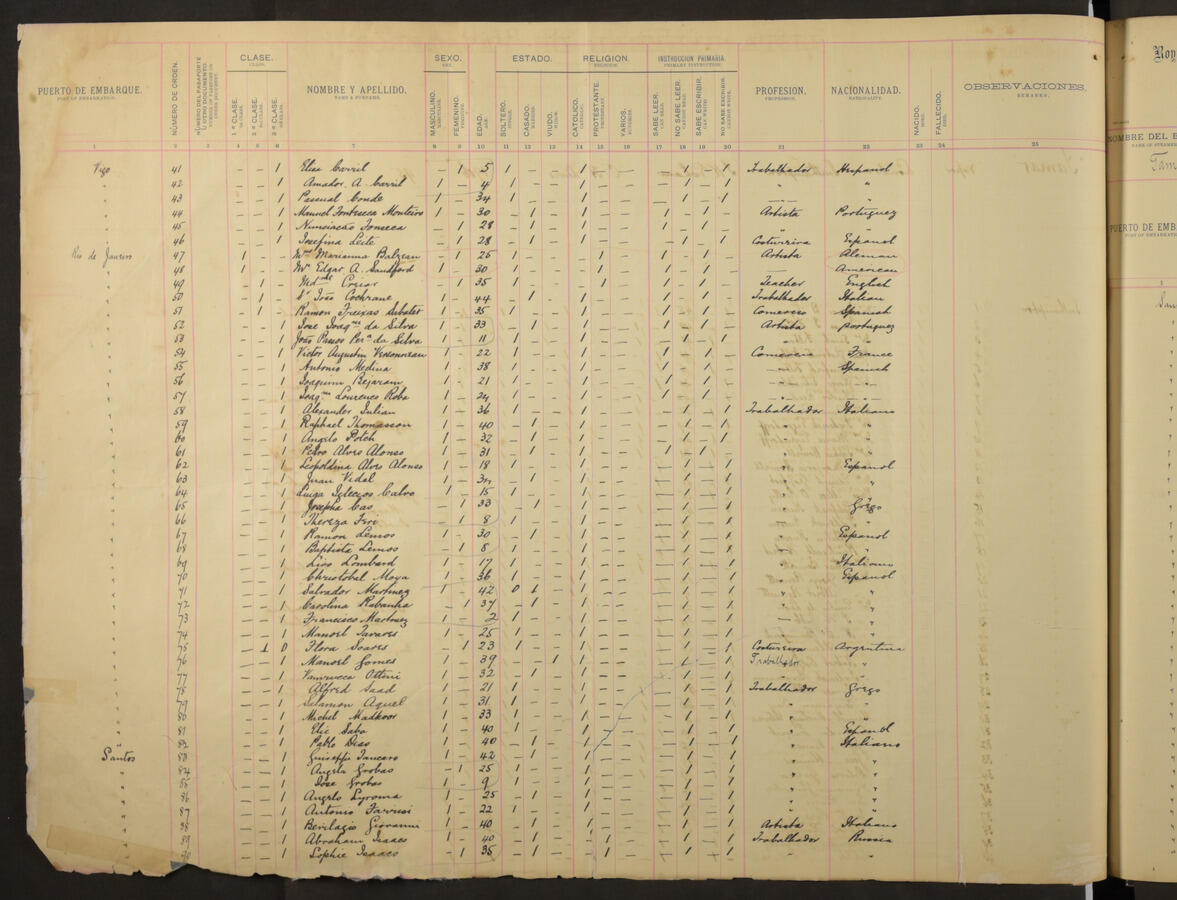 CLASE.
CLASS.
SEXO.
SEX.
ESTADO.
RELIGION.
RELIGION.
INSTRUCCION PRIMARIA.
PRIMARY INSTRUCTION.
PUERTO DE EMBARQUE.
PORT OF EMBARKATION.
NÚMERO DE ORDEN.
NÚMERO DEL PASAPORTE U OTRO DOCUMENTO.
1ª CLASE.
2ª CLASE.
3ª CLASE.
NOMBRE Y APELLIDO.
NAME & SURNAME.
MASCULINO.
FEMENINO.
EDAD.
SOLTERO.
CASADO.
VIUDO.
CATOLICO.
PROTESTANTE.
VARIOS.
SABE LEER.
NO SABE LEER.
SABE ESCRIBIR.
NO SABE ESCRIBIR.
PROFESION.
PROFESSION.
NACIONALIDAD.
NATIONALITY.
NACIDO.
FALLECIDO.
OBSERVACIONES.
REMARKS.
1 2 3 4 5 6 7 8 9 10 11 12 13 14 15 16 17 18 19 20 21 22 23 24 25
Vigo 41 - - 1 Elisa Carril - 1 5 1 - - 1 - - - 1 - 1 Trabalhador Hespanol
" 42 - - 1 Amador A Carril 1 - 4 1 - - 1 - - - 1 - 1 " "
" 43 - - 1 Pascual Conde 1 - 34 1 - - 1 - - - 1 - 1 " "
" 44 - - 1 Manuel Fonteseca Monteiro 1 - 30 - 1 - 1 - - 1 - 1 - Artista Portuguez
" 45 - - 1 Nunciacão Fonseca - 1 28 - 1 - 1 - - 1 - 1 - " "
" 46 - - 1 Josefina Leite - 1 28 - 1 - 1 - - - 1 - 1 Costurrira Espanol
Rio de Janeiro 47 1 - - Marianna Balzean - 1 25 1 - - 1 - - 1 - 1 - Artista Aleman
" 48 1 - - Mr Edgar A. Sandford 1 - 30 1 - - 1 - - 1 - 1 - " American
" 49 - 1 - - 1 35 1 - - - 1 - 1 - 1 - Teacher English
" 50 - 1 - Sr João Cochrane 1 - 44 - 1 - 1 - - 1 - 1 - Trabalhador Italian
" 51 - 1 - Ramon Freixas Sabater 1 - 35 1 - - 1 - - 1 - 1 - Comercio Spanish
" 52 - - 1 José Joaqm da Silva 1 - 33 - 1 - 1 - - 1 - 1 - Artista Portuguez
" 53 - - 1 João Passos Pera da Silva 1 - 11 1 - - 1 - - 1 - 1 -
" 54 - - 1 Victor Augustin 1 - 22 1 - - 1 - - 1 - 1 - Comercio France
" 55 - - 1 Antonio Medina 1 - 38 1 - - 1 - - 1 - 1 - Spanish
" 56 - - 1 Joaquim Bejaram 1 - 21 1 - - 1 - - 1 - 1 -
" 57 - - 1 Joaqm Lourenco Roba 1 - 24 1 - - 1 - - 1 - 1 -
" 58 - - 1 Alexander Julian 1 - 36 1 - - 1 - - - 1 - 1 Trabalhador Italiano
" 59 - - 1 Raphael Thomasson 1 - 40 - 1 - 1 - - - 1 - 1 " "
" 60 - - 1 Angelo Potch 1 - 32 - 1 - 1 - - - 1 - 1 " "
" 61 - - 1 Pedro Alves Alonso 1 - 31 - 1 - 1 - - 1 - 1 - " "
" 62 - - 1 Leopoldina Alves Alonso 1 - 18 1 - - 1 - - - 1 - 1 " Espanol
" 63 - - 1 Juan Vidal 1 - 34 - 1 - 1 - - - 1 - 1 " "
" 64 - - 1 Luiga Iglecios Calvo 1 - 15 1 - - 1 - - - 1 - 1 " "
" 65 - - 1 Josepha Cas - 1 33 - 1 - 1 - - - 1 - 1 " Grego
" 66 - - 1 Thereza - 1 8 1 - - 1 - - - 1 - 1 " "
" 67 - - 1 Ramon Lemos 1 - 30 - 1 - 1 - - - 1 - 1 " Espanol
" 68 - - 1 Baptista Lemos - 1 8 1 - - 1 - - - 1 - 1 " "
" 69 - - 1 Lombard 1 - 17 1 - - 1 - - - 1 - 1 " Italiano
" 70 - - 1 Christobal Moya 1 - 36 1 - - 1 - - - 1 - 1 " Espanol
" 71 - - 1 Salvador Martinez 1 - 42 0 1 - 1 - - - 1 - 1 " "
" 72 - - 1 Carolina Rabanha - 1 37 - 1 - 1 - - - 1 - 1 " "
" 73 - - 1 Francisco Martinez 1 - 2 1 - - 1 - - - 1 - 1 " "
" 74 - - 1 Manoel Tavares 1 - 25 - 1 - 1 - - - 1 - 1 " "
" 75 - 1 0 Flora Soares - 1 23 1 - - 1 - - - 1 - 1 Costureira Argentina
" 76 - - 1 Manoel Gomes 1 - 39 - - 1 1 - - - 1 - 1 Trabalhador "
" 77 - - 1 Ottoni 1 - 32 - 1 - 1 - - - 1 - 1 " "
" 78 - - 1 Alfred Saad 1 - 21 1 - - 1 - - - 1 - 1 Trabalhador Grego
" 79 - - 1 Salamon Aquel 1 - 31 1 - - 1 - - - 1 - 1 " "
" 80 - - 1 Michel Madkoor 1 - 33 1 - - 1 - - - 1 - 1 " "
" 81 - - 1 Elie Saba 1 - 40 1 - - 1 - - - 1 - 1 " Espanol
" 82 - - 1 Pablo Dias 1 - 40 - 1 - 1 - - - 1 - 1 " Italiano
Santos 83 - - 1 Guiseppe Tancaro 1 - 42 - 1 - 1 - - - 1 - 1 " "
" 84 - - 1 Angela Grobas - 1 25 1 - - 1 - - - 1 - 1 " "
" 85 - - 1 José Grobas 1 - 9 1 - - 1 - - - 1 - 1 " "
" 86 - - 1 Angelo Lyroma 1 - 25 - 1 - 1 - - - 1 - 1 " "
" 87 - - 1 Antonio Farrusi 1 - 22 1 - - 1 - - - 1 - 1 " "
" 88 - - 1 Bevilagio Giovanni 1 - 40 - 1 - 1 - - - 1 - 1 Artista Italiano
" 89 - - 1 Abraham Isaacs 1 - 40 - 1 - 1 1 - - 1 - 1 Trabalhador Russia
" 90 - - 1 Sophie Isaacs - 1 35 - 1 - - 1 - - 1 - 1 " "
Roy
NOMBRE DEL B
NAME OF STEAMER
PUERTO DE EMB
PORT OF EMBARKATION
1